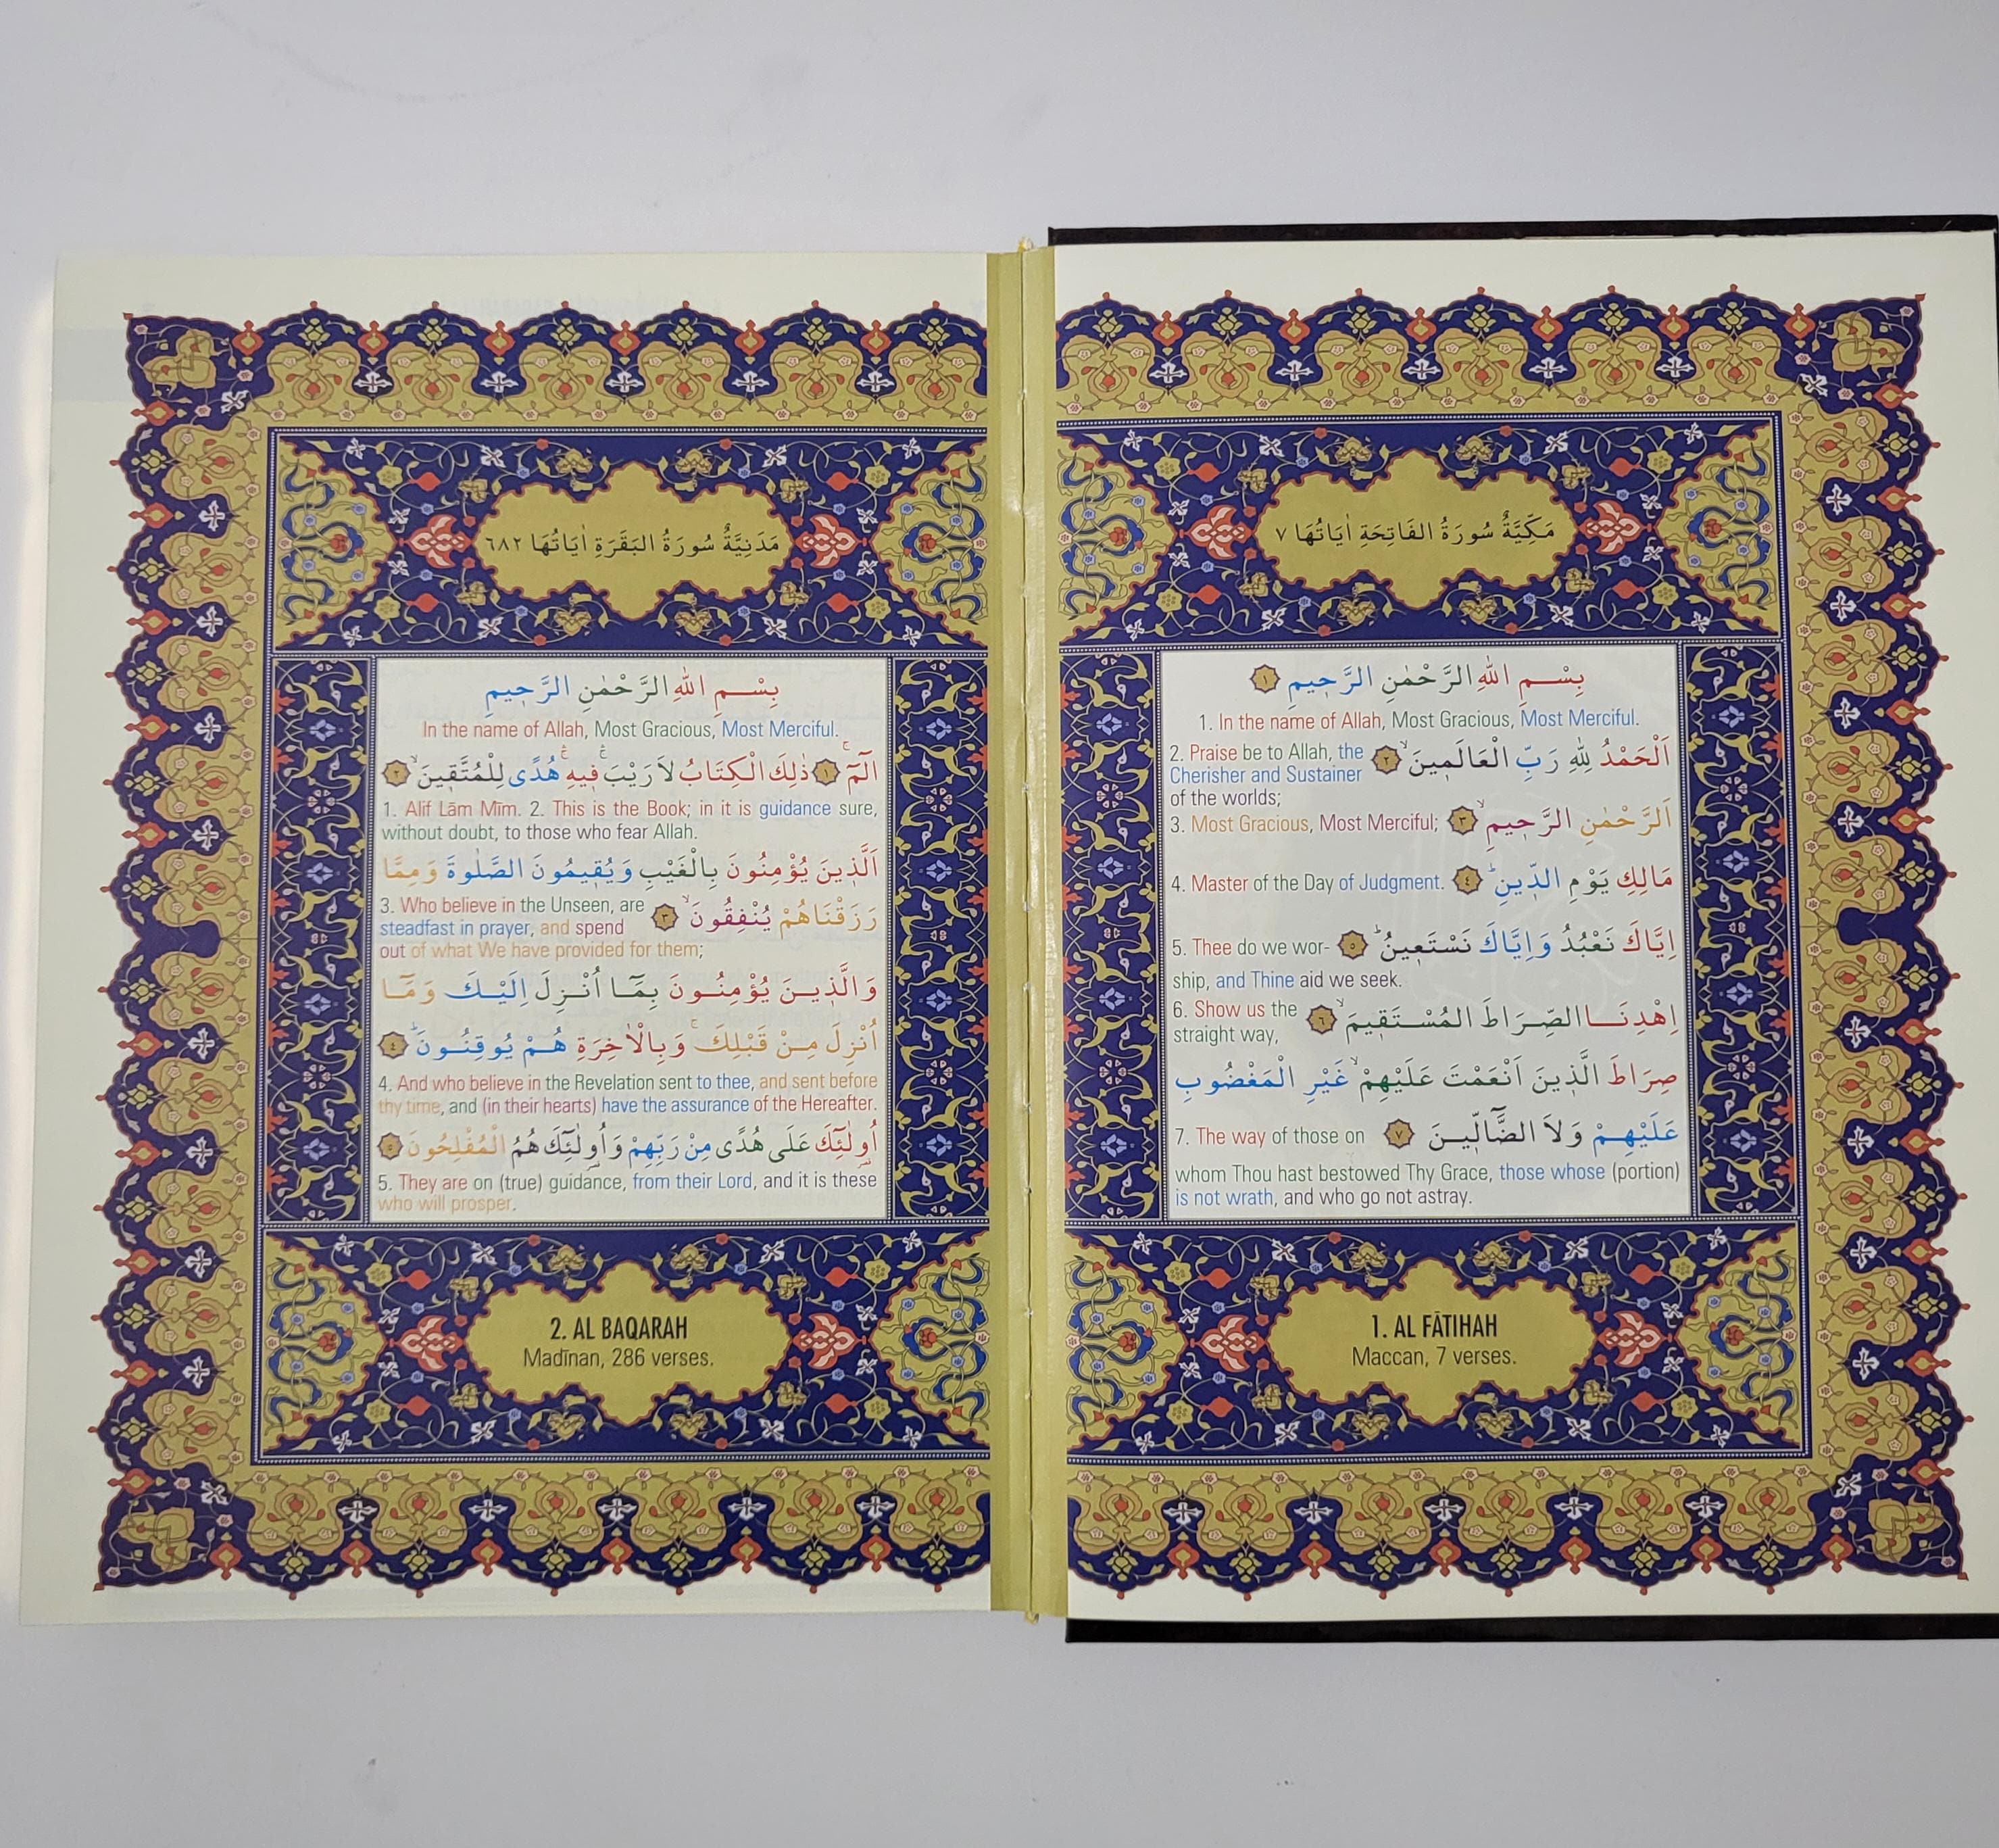 مَكِّيَّةٌ سُورَةُ الفَاتِحَةِ اٰيَاتُهَا ٧
بِسْـــمِ اللّٰهِ الرَّحْمٰنِ الرَّحٖيمِ ١
1. In the name of Allah, Most Gracious, Most Merciful.
اَلْحَمْدُ لِلّٰهِ رَبِّ الْعَالَمٖينَۙ ٢
2. Praise be to Allah, the
Cherisher and Sustainer
of the worlds;
اَلرَّحْمٰنِ الرَّحٖيمِۙ ٣
3. Most Gracious, Most Merciful;
مَالِكِ يَوْمِ الدّٖينِؕ ٤
4. Master of the Day of Judgment.
اِيَّاكَ نَعْبُدُ وَاِيَّاكَ نَسْتَعٖينُؕ ٥
5. Thee do we wor-
ship, and Thine aid we seek.
اِهْدِنَـــا الصِّـرَاطَ الْمُسْـــتَقٖيمَۙ ٦
6. Show us the
straight way,
صِرَاطَ الَّذٖينَ اَنْعَمْتَ عَلَيْهِمْۙ غَيْرِ الْمَغْضُوبِ
عَلَيْهِـــمْ وَلَا الضَّٓالّٖــينَ ٧
7. The way of those on
whom Thou hast bestowed Thy Grace, those whose (portion)
is not wrath, and who go not astray.
1. AL FĀTIHAH
Maccan, 7 verses.
مَدَنِيَّةٌ سُورَةُ البَقَرَةِ اٰيَاتُهَا ٦٨٢
بِسْـــمِ اللّٰهِ الرَّحْمٰنِ الرَّحٖيمِ
In the name of Allah, Most Gracious, Most Merciful.
الٓمٓۚ ١ ذٰلِكَ الْكِتَابُ لَا رَيْبَۚ فٖيهِۚ هُدًى لِلْمُتَّقٖينَۙ ٢
1. Alif Lām Mīm. 2. This is the Book; in it is guidance sure,
without doubt, to those who fear Allah.
اَلَّذٖينَ يُؤْمِنُونَ بِالْغَيْبِ وَيُقٖيمُونَ الصَّلٰوةَ وَمِمَّا
رَزَقْنَاهُمْ يُنْفِقُونَۙ ٣
3. Who believe in the Unseen, are
steadfast in prayer, and spend
out of what We have provided for them;
وَالَّذٖيـنَ يُؤْمِنُــونَ بِمَٓـا اُنْـزِلَ اِلَيْــكَ وَمَٓـا
اُنْزِلَ مِــنْ قَبْلِكَۚ وَبِالْاٰخِرَةِ هُــمْ يُوقِنُــونَؕ ٤
4. And who believe in the Revelation sent to thee, and sent before
thy time, and (in their hearts) have the assurance of the Hereafter.
اُولٰٓئِكَ عَلٰى هُدًى مِنْ رَبِّهِمْ وَاُولٰٓئِكَ هُمُ الْمُفْلِحُونَ ٥
5. They are on (true) guidance, from their Lord, and it is these
who will prosper.
2. AL BAQARAH
Madīnan, 286 verses.